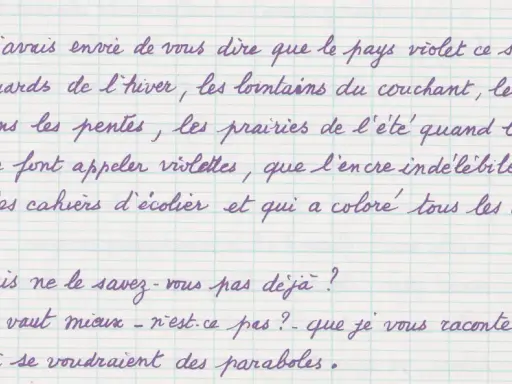 'avais envie de vous dire que le pays violet ce s
ards de l'hiver, les lointains du couchant, le
ns les pentes, les prairies de l'été quand l
e font appeler violettes, que l'encre indélébile
es cahiers d'écolier et qui a coloré tous les
is ne le savez-vous pas déjà ?
vaut mieux - n'est-ce pas ? - que je vous raconte
se voudraient des paraboles.